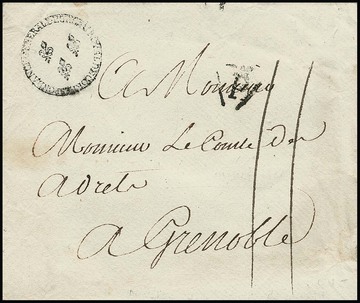 A Monsieur
Monsieur Le Comte Des
Adrets
a Grenoble